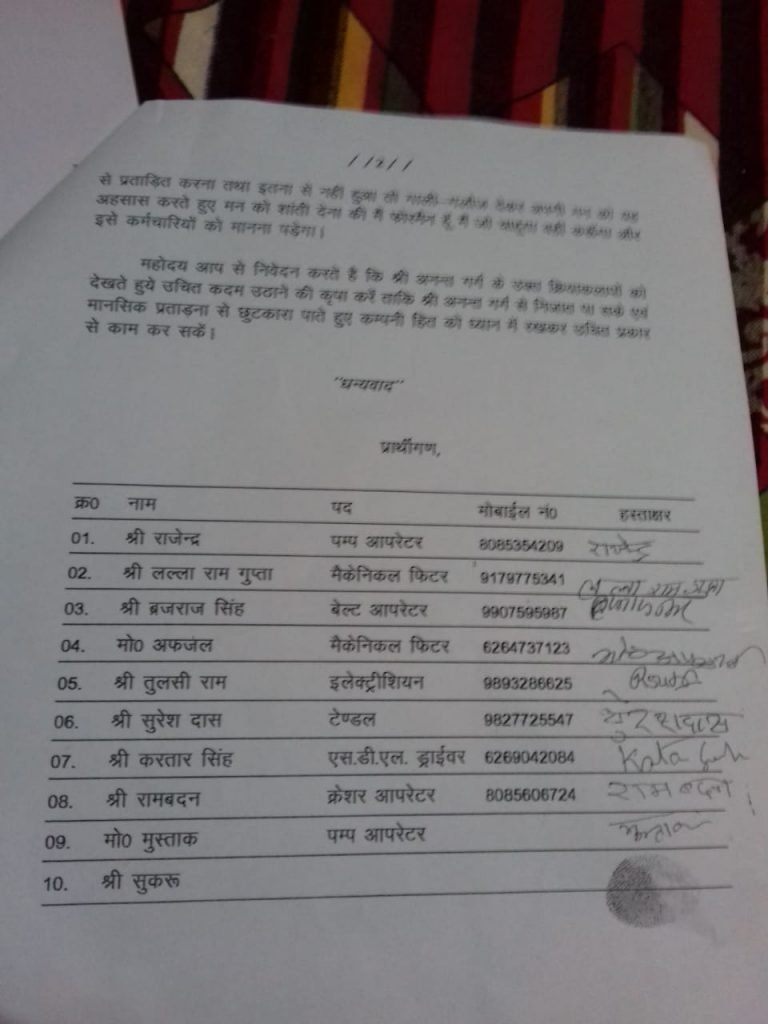 //2//
से प्रताड़ित करना तथा इतना से नहीं हुआ तो गाली-गलौज देकर अपनी मन को यह
अहसास करते हुए मन को शांती देना की मैं फोरमैन हूं मैं जो चाहूंगा वही करूँगा और
इसे कर्मचारियों को मानना पड़ेगा।
महोदय आप से निवेदन करते है कि श्री अनन्त गर्ग के उक्त क्रियाकलापों को
देखते हुये उचित कदम उठाने की कृपा करें ताकि श्री अनन्त गर्ग से निजात पा सकें एवं
मानसिक प्रताड़ना से छुटकारा पाते हुए कम्पनी हित को ध्यान में रखकर उचित प्रकार
से काम कर सकें।
"धन्यवाद"
प्रार्थीगण,
क्र0 नाम पद मोबाईल नं0 हस्ताक्षर
01. श्री राजेन्द्र पम्प आपरेटर 8085354209 राजेन्द्र
02. श्री लल्ला राम गुप्ता मैकेनिकल फिटर 9179775341 लल्ला राम गुप्ता
03. श्री ब्रजराज सिंह बेल्ट आपरेटर 9907595987
04. मो0 अफजल मैकेनिकल फिटर 6264737123
05. श्री तुलसी राम इलेक्ट्रीशियन 9893286625
06. श्री सुरेश दास टेण्डल 9827725547 सुरेशदास
07. श्री करतार सिंह एस.डी.एल. ड्राईवर 6269042084
08. श्री रामबदन क्रेशर आपरेटर 8085606724 रामबदन
09. मो0 मुस्ताक पम्प आपरेटर
10. श्री सुकरू